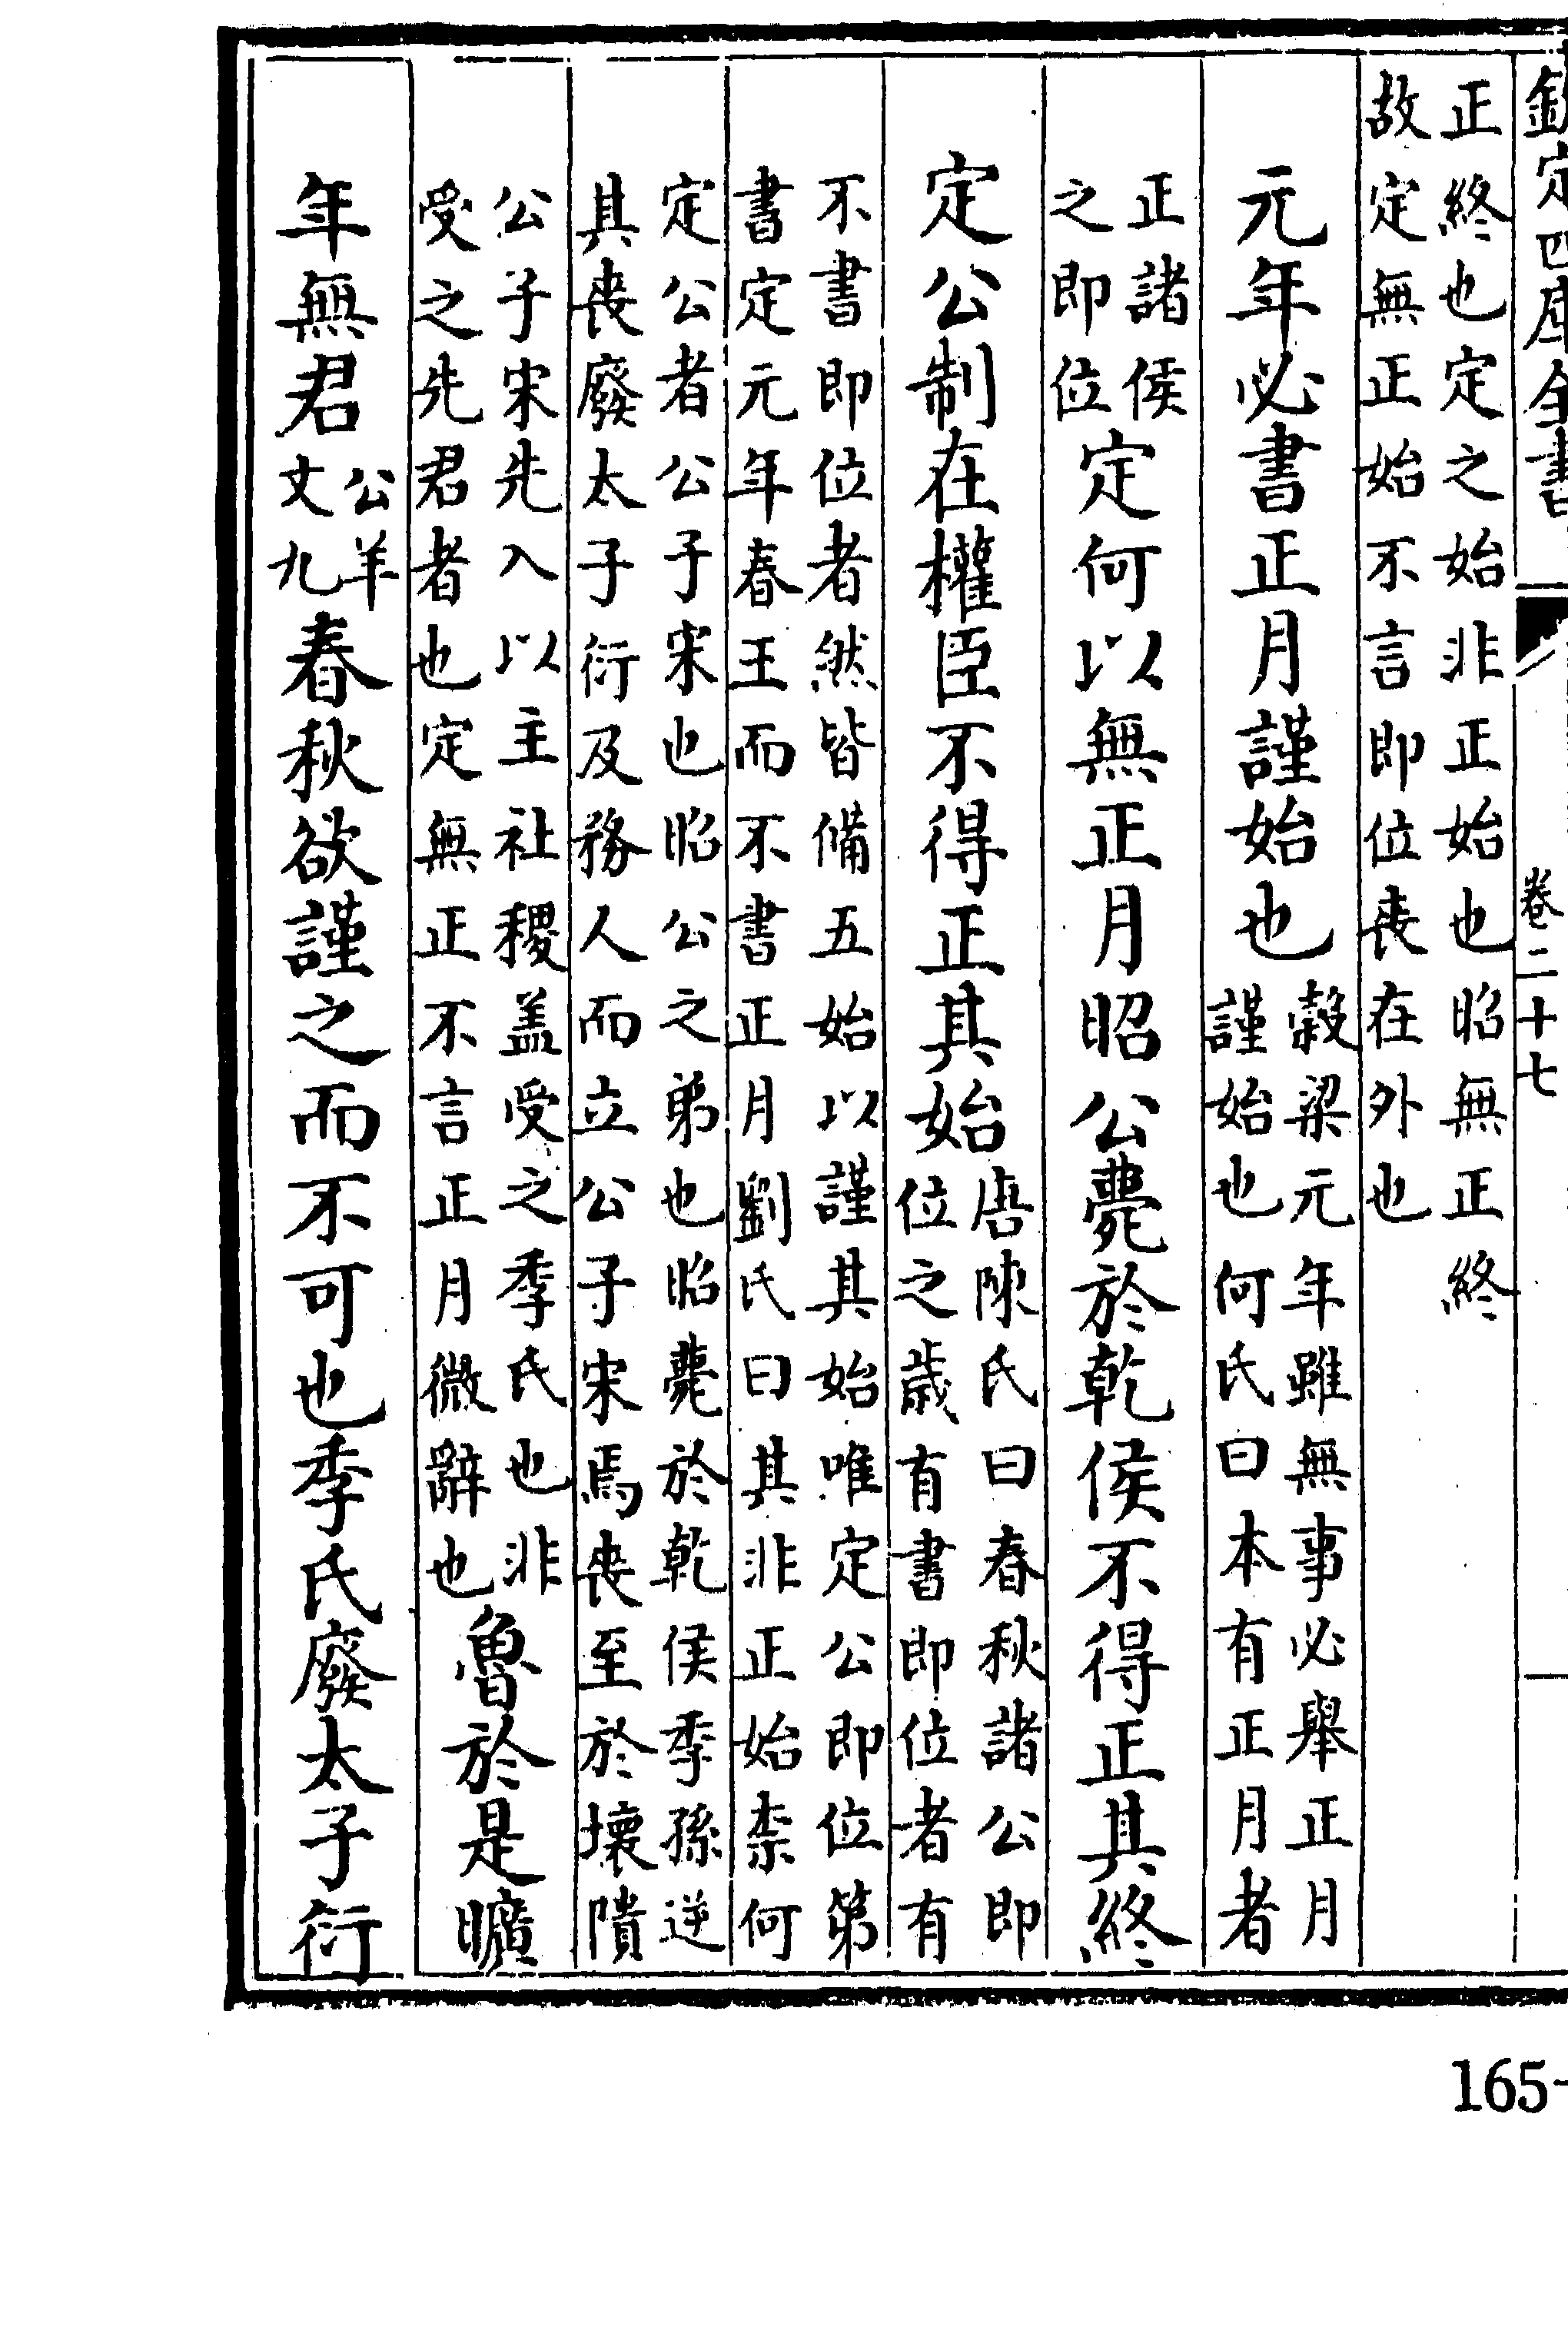 欽定四庫全書 卷二十七
正終也定之始非正始也昭無正終
故定無正始不言即位喪在外也
元年必書正月謹始也
穀梁元年雖無事必舉正月
謹始也何氏曰本有正月者
正諸侯
之即位
定何以無正月昭公薨於乾侯不得正其終
定公制在權臣不得正其始
唐陳氏曰春秋諸公即
位之歲有書即位者有
不書即位者然皆備五始以謹其始唯定公即位第
書定元年春王而不書正月劉氏曰其非正始柰何
定公者公子宋也昭公之弟也昭薨於乾侯季孫逆
其喪廢太子衍及務人而立公子宋焉喪至於壞隤
公子宋先入以主社稷盖受之季氏也非
受之先君者也定無正不言正月微辭也
魯於是曠
年無君
公羊
文九
春秋欲謹之而不可也季氏廢太子衍
165-